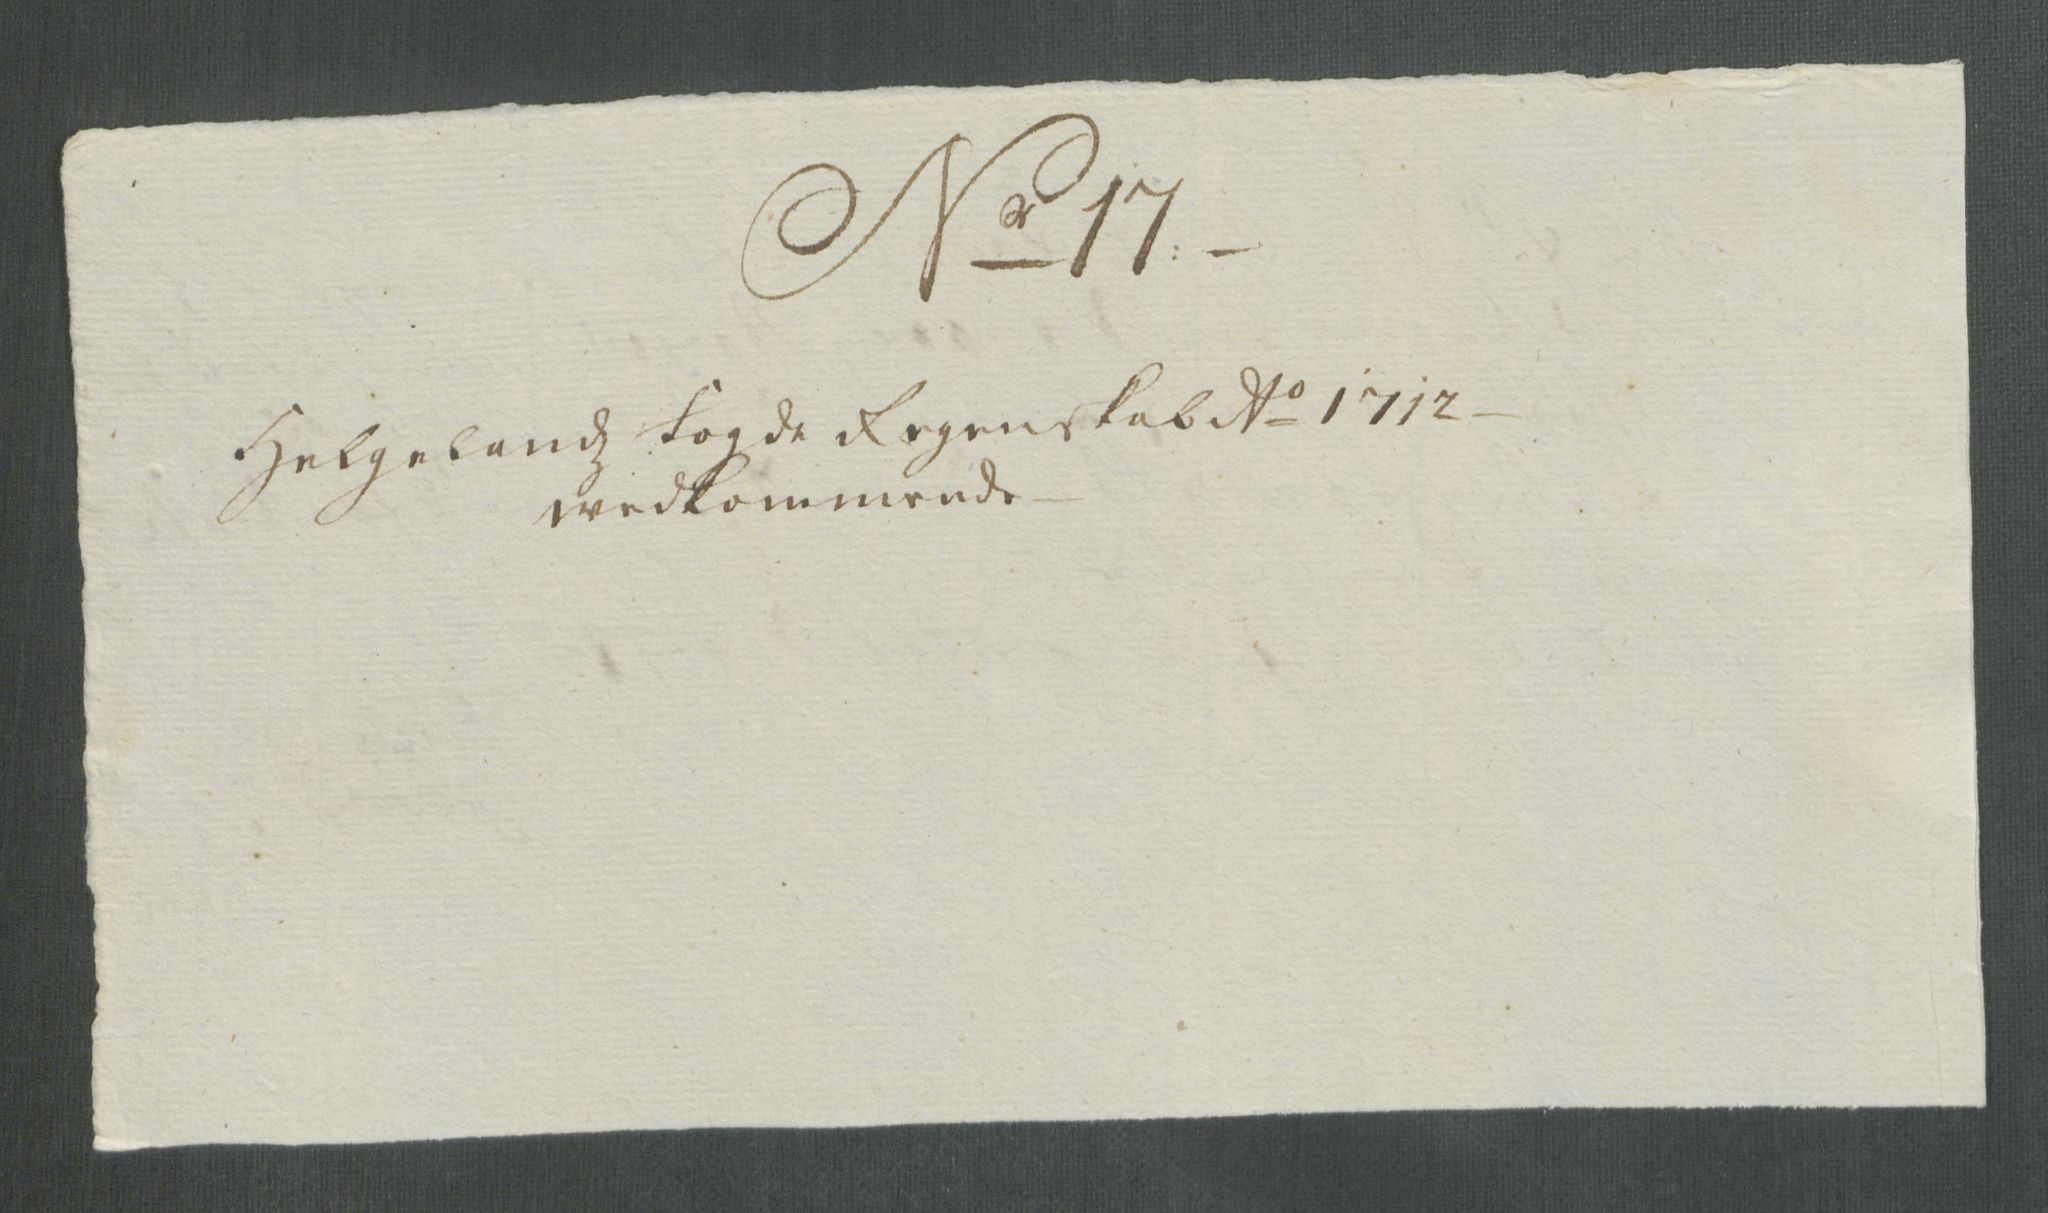 Nr 17:
Helgelandz fogde Regenskab Ao 1712
vedkommende